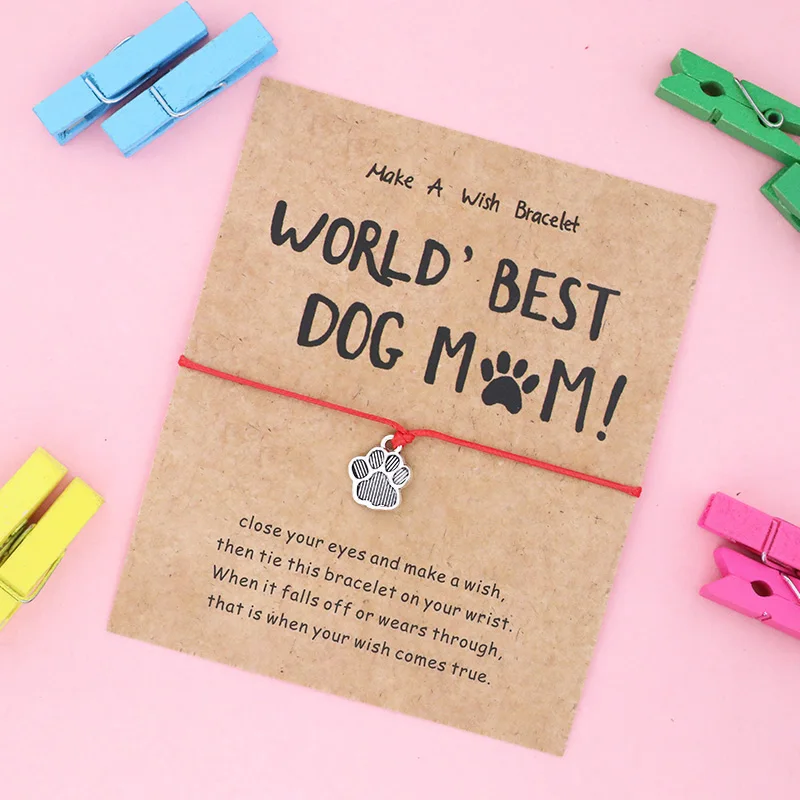 Make A Wish Bracelet
WORLD' BEST
DOG MOM!
close your eyes and make a wish,
then tie this bracelet on your wrist.
When it falls off or wears through,
that is when your wish comes true.